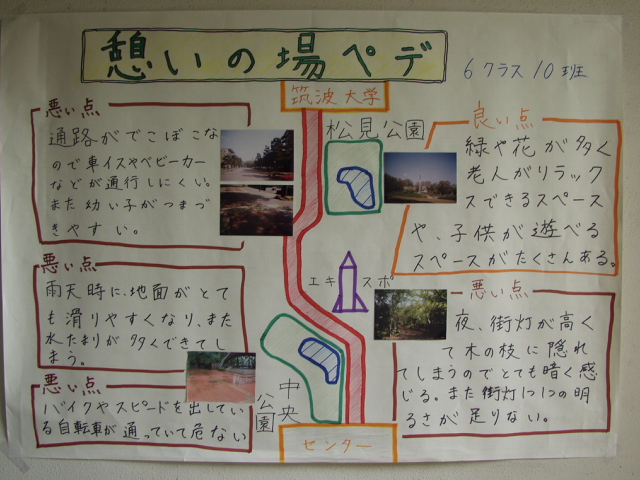 憩いの場ペデ
6クラス10班
筑波大学
悪い点
通路がでこぼこな
ので車イスやベビーカー
などが通行しにくい。
また幼い子がつまづ
きやすい。
松見公園
良い点
緑や花が多く
老人がリラック
スできるスペース
や、子供が遊べる
スペースがたくさんある。
悪い点
雨天時に、地面がとて
も滑りやすくなり、また
水たまりが多くできてし
まう。
エキスポ
悪い点
夜、街灯が高く
て木の枝に隠れ
てしまうのでとても暗く感
じる。また街灯1つ1つの明
るさが足りない。
悪い点
バイクやスピードを出してい
る自転車が通っていて危ない
中央
公園
センター